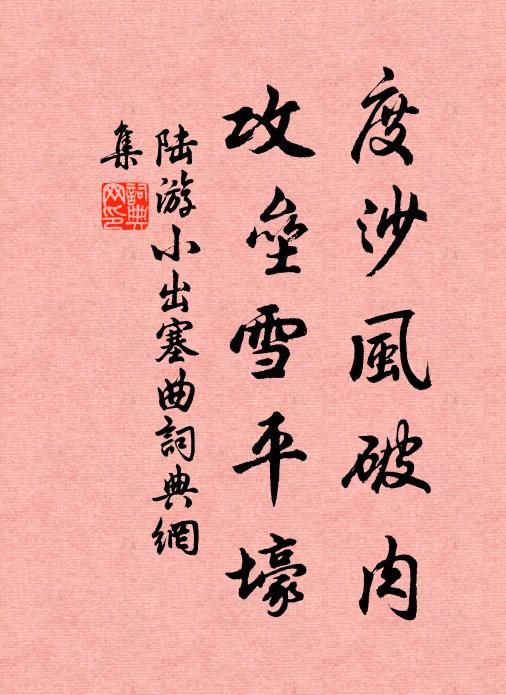 度沙風破肉
攻壘雪平壕
陆游小出塞曲詞典網
集
詞典
网印